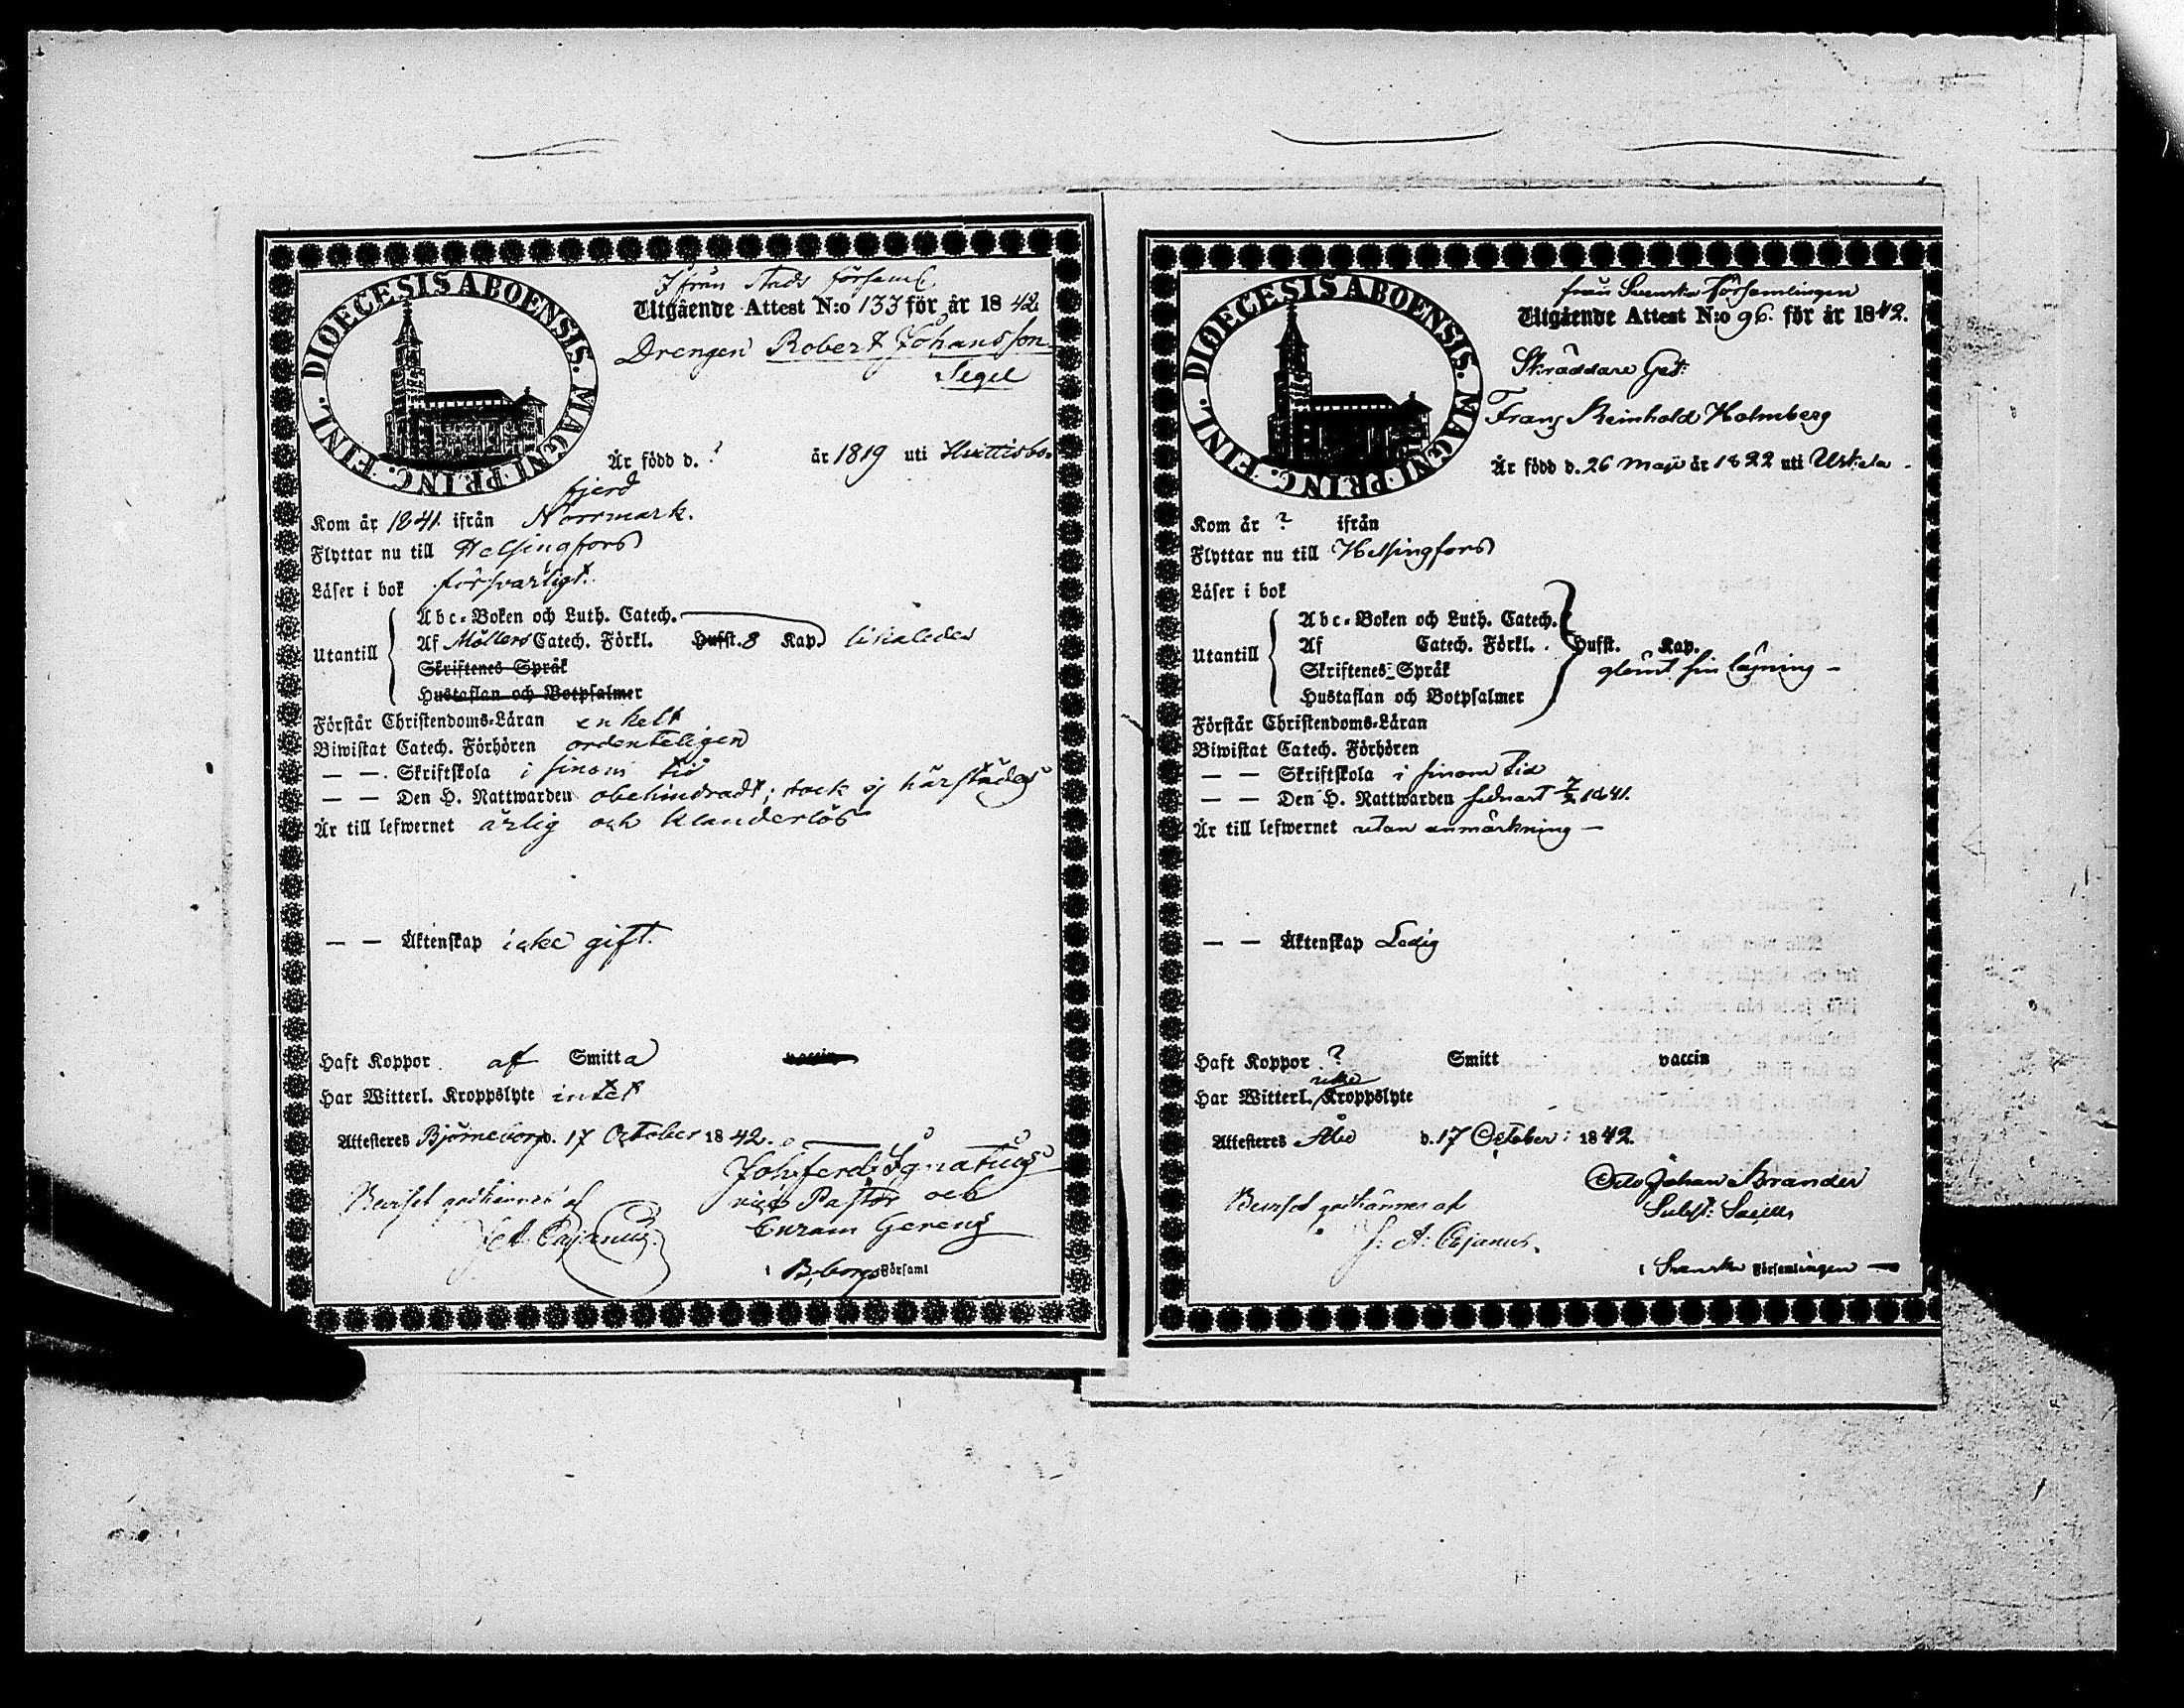 DIOECESIS ABOENSIS. MAGNI PRINC. FINL.
Ifrån Stads församl
Utgående Attest N:o 133 för år 1842
Drengen Robert Johansson
Segel
Är född d. ? år 1819 uti Hvittisbo-
fjerd
Kom år 1841 ifrån Norrmark.
Flyttar nu till Helsingfors
Läser i bok försvarligt.
Utantill
Abc-Boken och Luth. Catech.
Af Möllers Catech. Förkl. Hufst. 8 Kap. likaledes
Skriftenes Språk
Hustaflan och Botpsalmer
Förstår Christendoms-Läran enkelt
Biwistat Catech. Förhören ordenteligen
— — Skriftskola i sinom tid
— — Den H. Nattwarden obehindradt; dock ej härstädes
Är till lefwernet ärlig och klanderlös
— — Äktenskap icke gift.
Haft Koppor af Smitta vaccin
Har Witterl. Kroppslyte intet
Attesteres Björneborg d. 17 October 1842.
Joh. Ferd. Ignatius
vice Pastor och
Curam Gerens
i B,borgs Församl
Beviset godkännes af
J. A. Cajanus.
DIOECESIS ABOENSIS. MAGNI PRINC. FINL.
från Svenska Församlingen
Utgående Attest N:o 96. för år 1842.
Skräddare Ges:
Frans Reinhold Holmberg
Är född d. 26 Maji år 1822 uti Uskela
Kom år ? ifrån
Flyttar nu till Helsingfors
Läser i bok
Utantill
Abc-Boken och Luth. Catech.
Af Catech. Förkl. Hufst. Kap.
Skriftenes Språk
Hustaflan och Botpsalmer
glömt sin läsning —
Förstår Christendoms-Läran
Biwistat Catech. Förhören
— — Skriftskola i sinom tid
— — Den H. Nattwarden sednast 7/2 1841.
Är till lefwernet utan anmärkning —
— — Äktenskap Ledig
Haft Koppor ? Smitt vaccin
Har Witterl. Kroppslyte
Attesteres Åbo d. 17 October: 1842.
Johan Brander
Subst:
i Svenska Församlingen —
Beviset godkännes af
J: A: Cajanus.